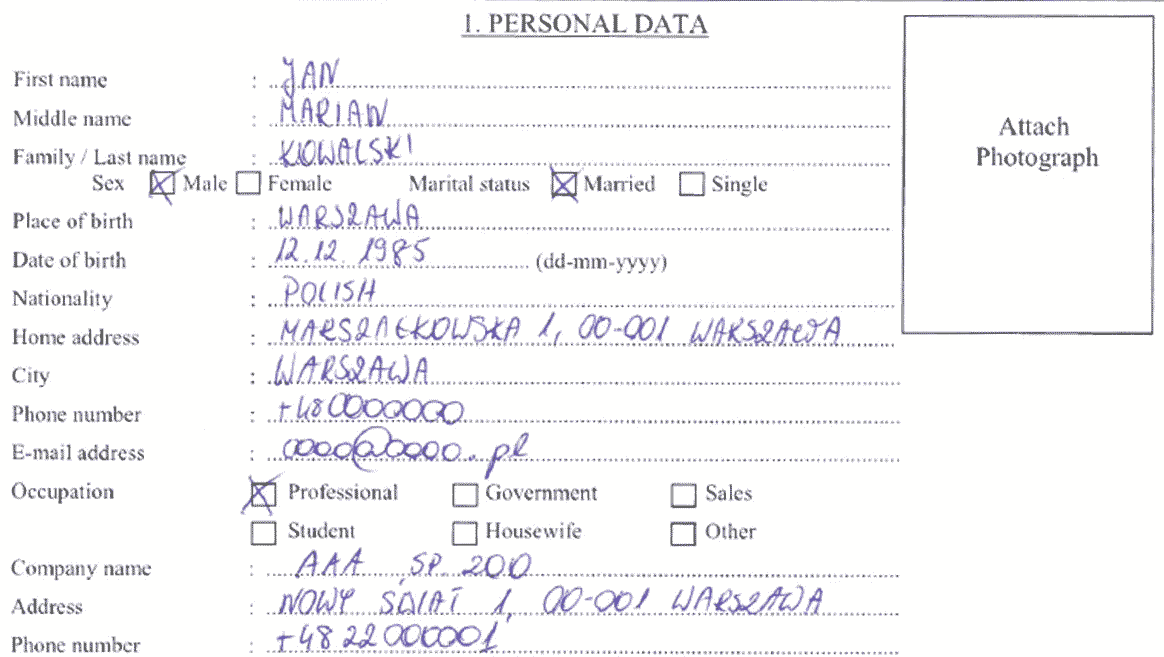 1. PERSONAL DATA
Attach
Photograph
First name : JAN
Middle name : MARIAN
Family / Last name : KOWALSKI
Sex Male Female Marital status Married Single
Place of birth : WARSZAWA
Date of birth : 12.12.1985 (dd-mm-yyyy)
Nationality : POLISH
Home address : MARSZAŁKOWSKA 1, 00-001 WARSZAWA
City : WARSZAWA
Phone number :
E-mail address :
Occupation Professional Government Sales
Student Housewife Other
Company name : AAA SP. ZOO
Address : NOWY ŚWIAT 1, 00-001 WARSZAWA
Phone number :